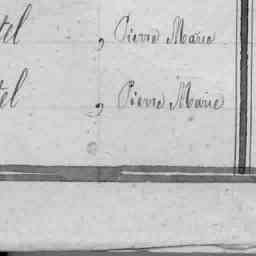 tel , Pierre Marie
tel , Pierre Marie